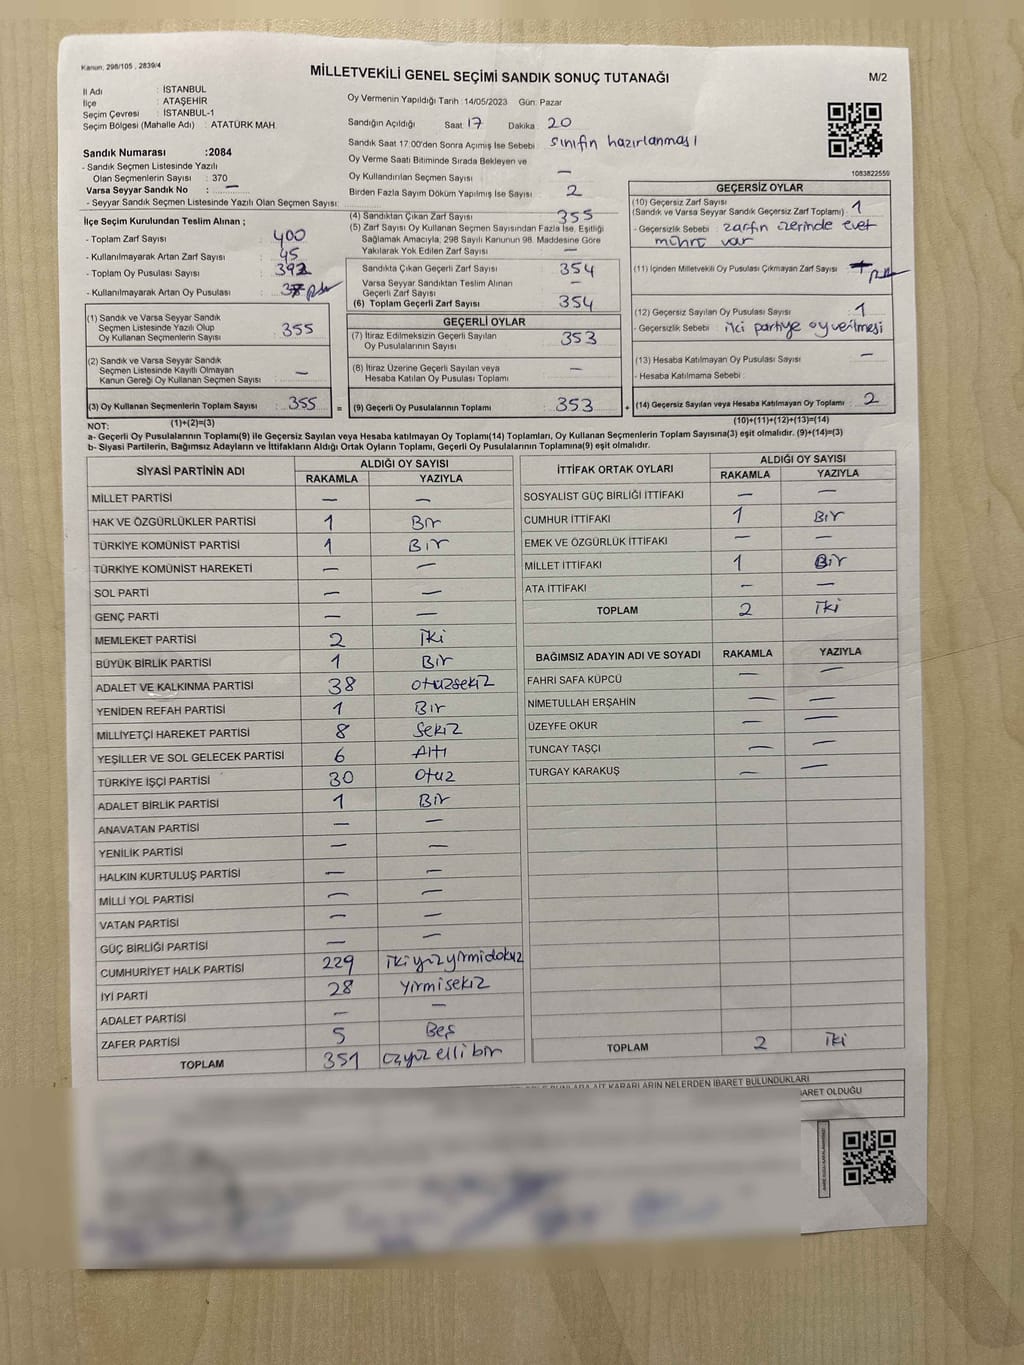 Kanun; 298/105 , 2839/4
MİLLETVEKİLİ GENEL SEÇİMİ SANDIK SONUÇ TUTANAĞI
M/2
İl Adı : İSTANBUL
İlçe : ATAŞEHİR
Seçim Çevresi : İSTANBUL-1
Seçim Bölgesi (Mahalle Adı) : ATATÜRK MAH.
Sandık Numarası :2084
- Sandık Seçmen Listesinde Yazılı
Olan Seçmenlerin Sayısı : 370
Varsa Seyyar Sandık No : —
- Seyyar Sandık Seçmen Listesinde Yazılı Olan Seçmen Sayısı:
Oy Vermenin Yapıldığı Tarih : 14/05/2023 Gün: Pazar
Sandığın Açıldığı Saat 17 Dakika : 20
Sandık Saat 17.00'den Sonra Açımış İse Sebebi : sınıfın hazırlanması
Oy Verme Saati Bitiminde Sırada Bekleyen ve
Oy Kullandırılan Seçmen Sayısı : —
Birden Fazla Sayım Döküm Yapılmış İse Sayısı : 2
1083822559
İlçe Seçim Kurulundan Teslim Alınan ;
- Toplam Zarf Sayısı : 400
- Kullanılmayarak Artan Zarf Sayısı : 45
- Toplam Oy Pusulası Sayısı : 392
- Kullanılmayarak Artan Oy Pusulası :
(1) Sandık ve Varsa Seyyar Sandık
Seçmen Listesinde Yazılı Olup
Oy Kullanan Seçmenlerin Sayısı : 355
(2) Sandık ve Varsa Seyyar Sandık
Seçmen Listesinde Kayıtlı Olmayan
Kanun Gereği Oy Kullanan Seçmen Sayısı : —
(3) Oy Kullanan Seçmenlerin Toplam Sayısı : 355 =
(1)+(2)=(3)
(4) Sandıktan Çıkan Zarf Sayısı : 355
(5) Zarf Sayısı Oy Kullanan Seçmen Sayısından Fazla İse, Eşitliği
Sağlamak Amacıyla, 298 Sayılı Kanunun 98. Maddesine Göre
Yakılarak Yok Edilen Zarf Sayısı : —
Sandıkta Çıkan Geçerli Zarf Sayısı : 354
Varsa Seyyar Sandıktan Teslim Alınan
Geçerli Zarf Sayısı : —
(6) Toplam Geçerli Zarf Sayısı : 354
GEÇERLİ OYLAR
(7) İtiraz Edilmeksizin Geçerli Sayılan
Oy Pusulalarının Sayısı : 353
(8) İtiraz Üzerine Geçerli Sayılan veya
Hesaba Katılan Oy Pusulası Toplamı : —
(9) Geçerli Oy Pusulalarının Toplamı : 353 +
GEÇERSİZ OYLAR
(10) Geçersiz Zarf Sayısı
(Sandık ve Varsa Seyyar Sandık Geçersiz Zarf Toplamı) : 1
- Geçersizlik Sebebi : zarfın üzerinde evet
mührü var
(11) İçinden Milletvekili Oy Pusulası Çıkmayan Zarf Sayısı :
(12) Geçersiz Sayılan Oy Pusulası Sayısı : 1
- Geçersizlik Sebebi : iki partiye oy verilmesi
(13) Hesaba Katılmayan Oy Pusulası Sayısı : —
- Hesaba Katılmama Sebebi :
(14) Geçersiz Sayılan veya Hesaba Katılmayan Oy Toplamı : 2
(10)+(11)+(12)+(13)=(14)
NOT:
a- Geçerli Oy Pusulalarının Toplamı(9) ile Geçersiz Sayılan veya Hesaba katılmayan Oy Toplamı(14) Toplamları, Oy Kullanan Seçmenlerin Toplam Sayısına(3) eşit olmalıdır. (9)+(14)=(3)
b- Siyasi Partilerin, Bağımsız Adayların ve İttifakların Aldığı Ortak Oyların Toplamı, Geçerli Oy Pusulalarının Toplamına(9) eşit olmalıdır.
SİYASİ PARTİNİN ADI ALDIĞI OY SAYISI
RAKAMLA YAZIYLA
MİLLET PARTİSİ — —
HAK VE ÖZGÜRLÜKLER PARTİSİ 1 Bir
TÜRKİYE KOMÜNİST PARTİSİ 1 Bir
TÜRKİYE KOMÜNİST HAREKETİ — —
SOL PARTİ — —
GENÇ PARTİ — —
MEMLEKET PARTİSİ 2 İki
BÜYÜK BİRLİK PARTİSİ 1 Bir
ADALET VE KALKINMA PARTİSİ 38 otuzsekiz
YENİDEN REFAH PARTİSİ 1 Bir
MİLLİYETÇİ HAREKET PARTİSİ 8 Sekiz
YEŞİLLER VE SOL GELECEK PARTİSİ 6 Altı
TÜRKİYE İŞÇİ PARTİSİ 30 otuz
ADALET BİRLİK PARTİSİ 1 Bir
ANAVATAN PARTİSİ — —
YENİLİK PARTİSİ — —
HALKIN KURTULUŞ PARTİSİ — —
MİLLİ YOL PARTİSİ — —
VATAN PARTİSİ — —
GÜÇ BİRLİĞİ PARTİSİ — —
CUMHURİYET HALK PARTİSİ 229 ikiyüzyirmidokuz
İYİ PARTİ 28 yirmisekiz
ADALET PARTİSİ — —
ZAFER PARTİSİ 5 Beş
TOPLAM 351 üçyüz elli bir
İTTİFAK ORTAK OYLARI ALDIĞI OY SAYISI
RAKAMLA YAZIYLA
SOSYALİST GÜÇ BİRLİĞİ İTTİFAKI — —
CUMHUR İTTİFAKI 1 Bir
EMEK VE ÖZGÜRLÜK İTTİFAKI — —
MİLLET İTTİFAKI 1 Bir
ATA İTTİFAKI — —
TOPLAM 2 İki
BAĞIMSIZ ADAYIN ADI VE SOYADI RAKAMLA YAZIYLA
FAHRİ SAFA KÜPCÜ — —
NİMETULLAH ERŞAHİN — —
ÜZEYFE OKUR — —
TUNCAY TAŞÇI — —
TURGAY KARAKUŞ — —
TOPLAM 2 iki
KARARLARIN NELERDEN İBARET BULUNDUKLARI
OLDUĞU